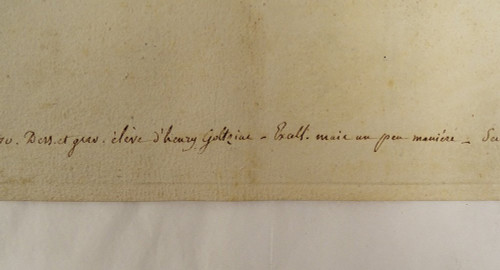 Dess. et grav. élève d'henry Goltzius - Exall. mais un peu manière -